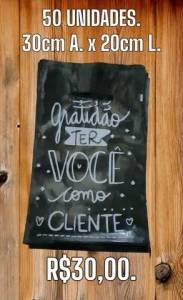 50 UNIDADES.
30cm A. x 20cm L.
gratidão
TER
VOCÊ
como
CLIENTE
R$30,00.